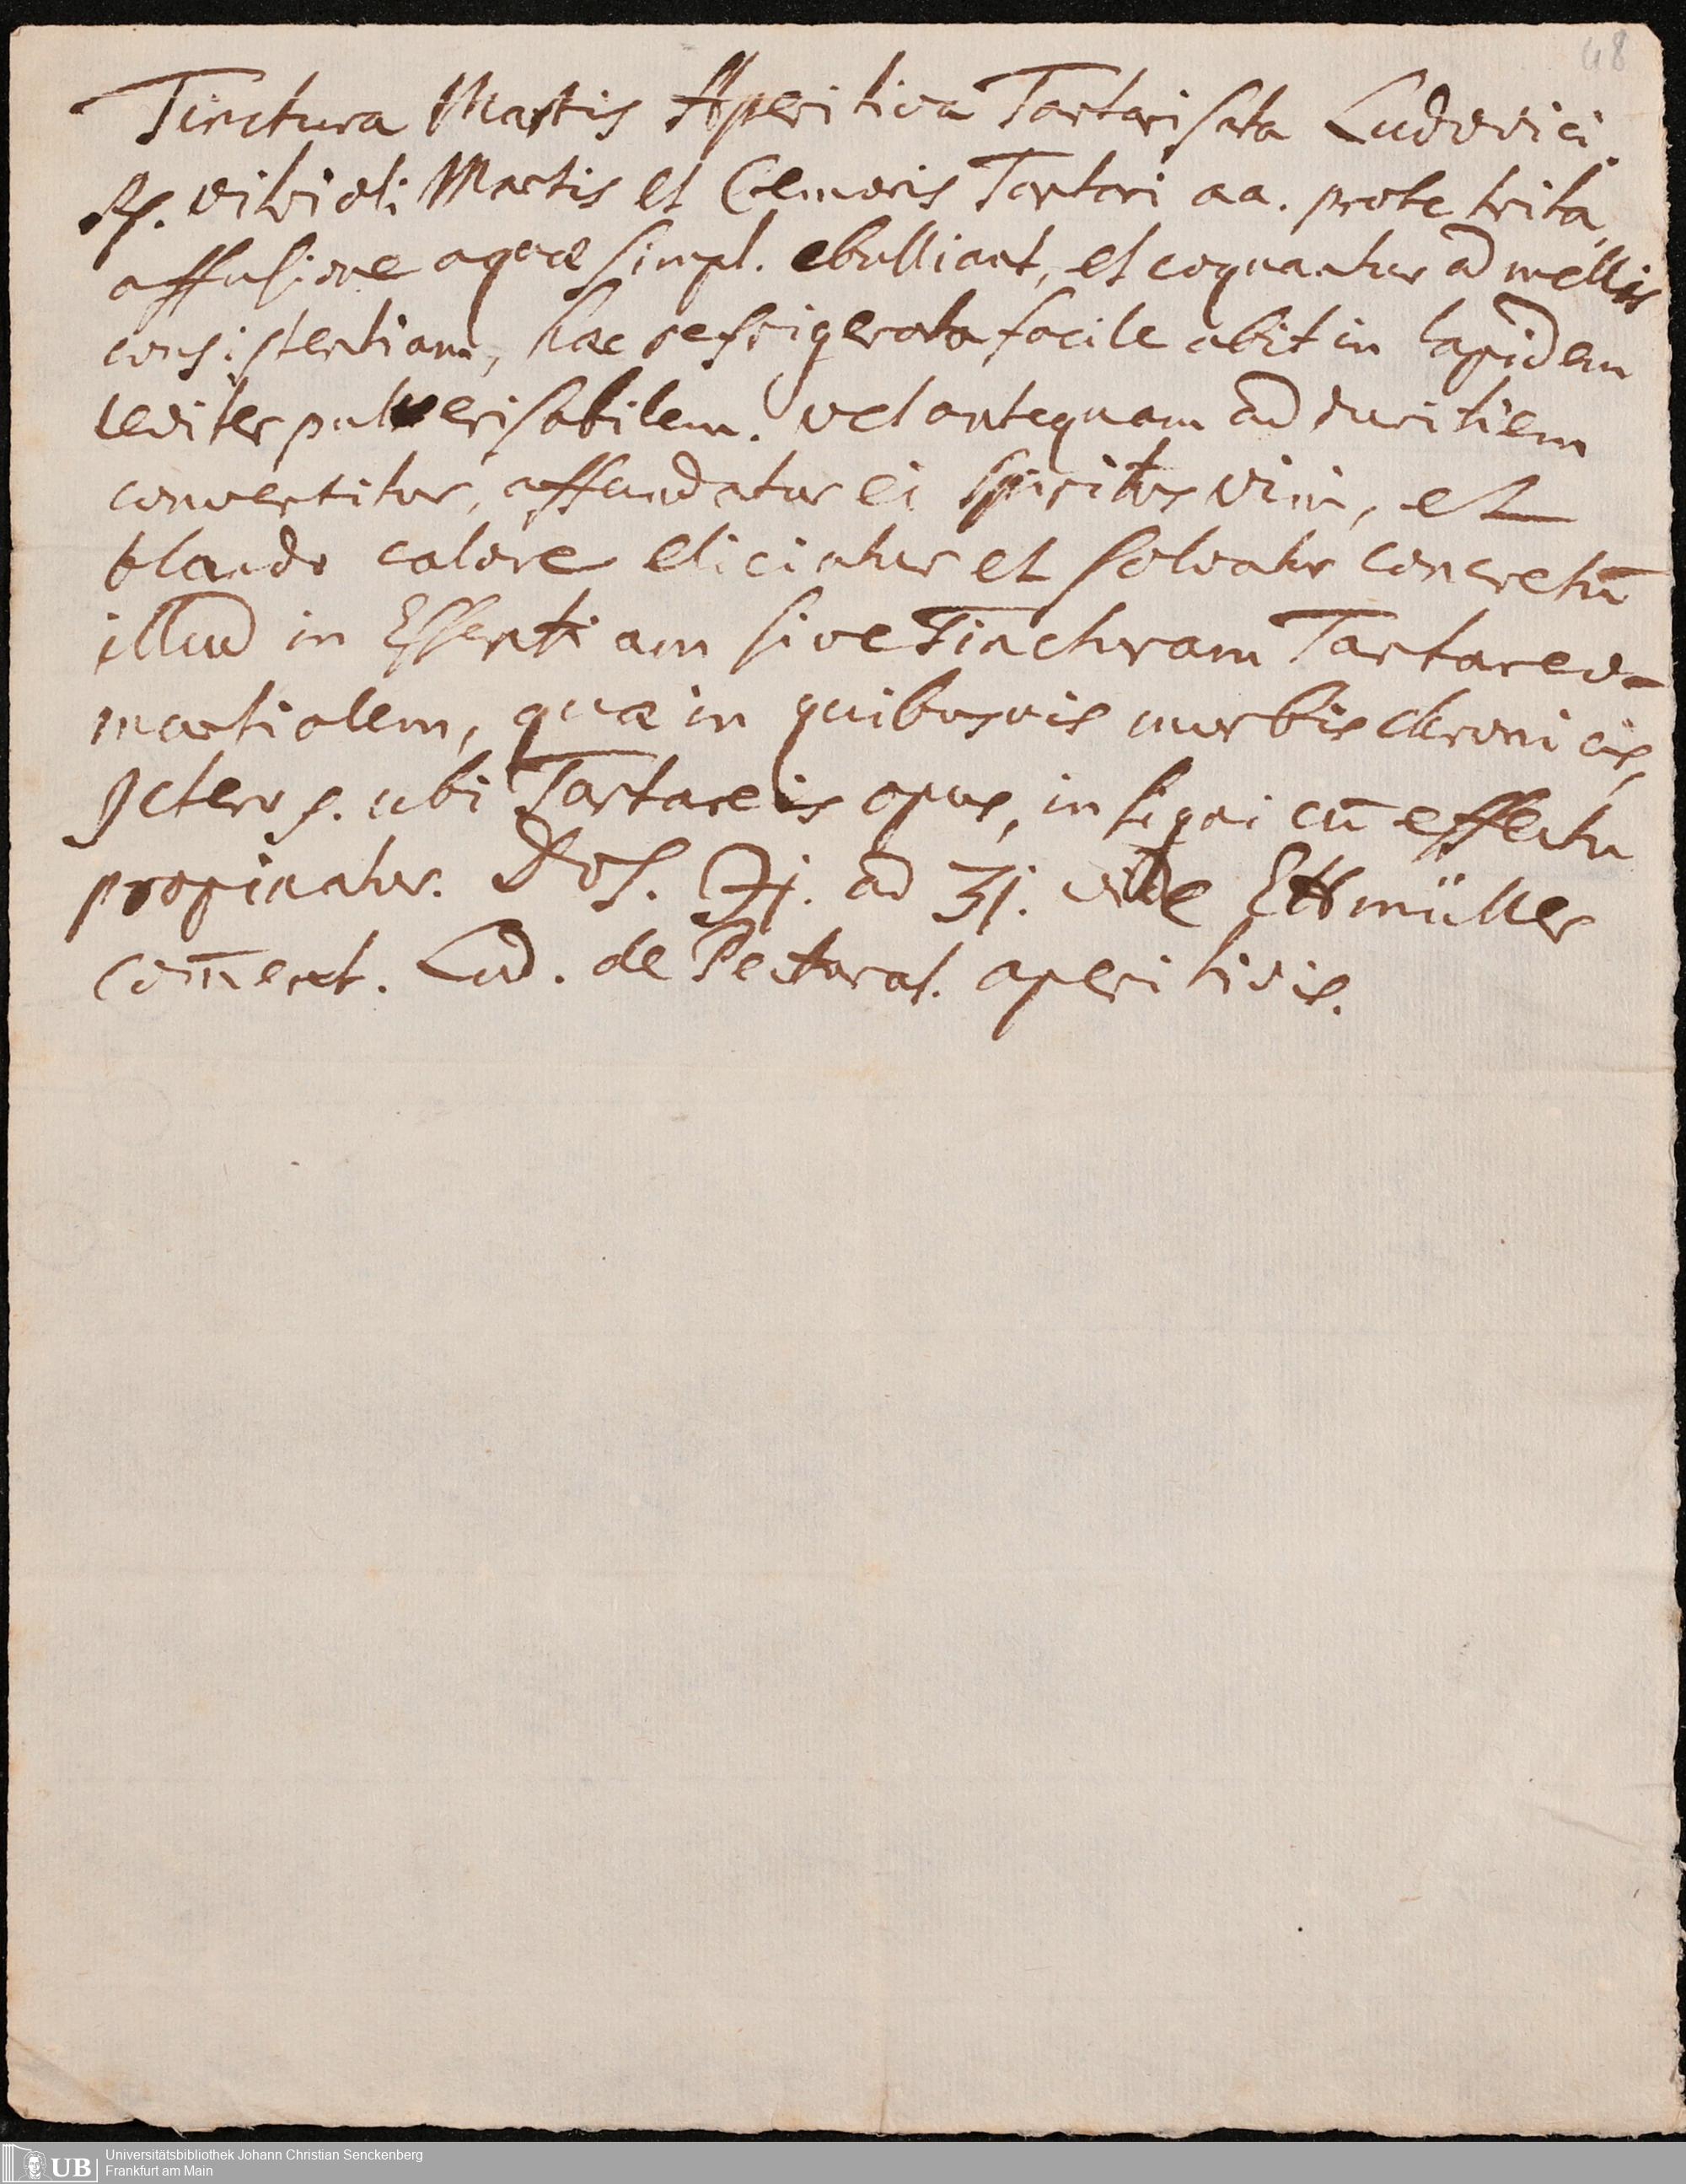 48
Tinctura Martis Aperitiva Tartarisata Ludovici.
℞. vitrioli Martis et Cremoris Tartari aa. probe trita,
affusione aquæ simpl. ebulliant, et coquantur ad mellis
consistentiam, hac refrigerata facile abit in lapidem
leviter pulverisabilem. vel antequam ad duritiem
convertitur, affundatur ei spiritus vini, et
blando calore eliciatur et solvatur concretū
illud in Essentiam sive Tincturam Tartareo-
martialem, quæ in quibusvis morbis chronicis,
Ictero s. ubi Tartareis opus, insigni cū effectu
propinatur. Dos. ℈j. ad ʒj. vide Ettmüller
com̄ent. Lud. de Pectoral. aperitivis.
UB
Universitätsbibliothek Johann Christian Senckenberg
Frankfurt am Main